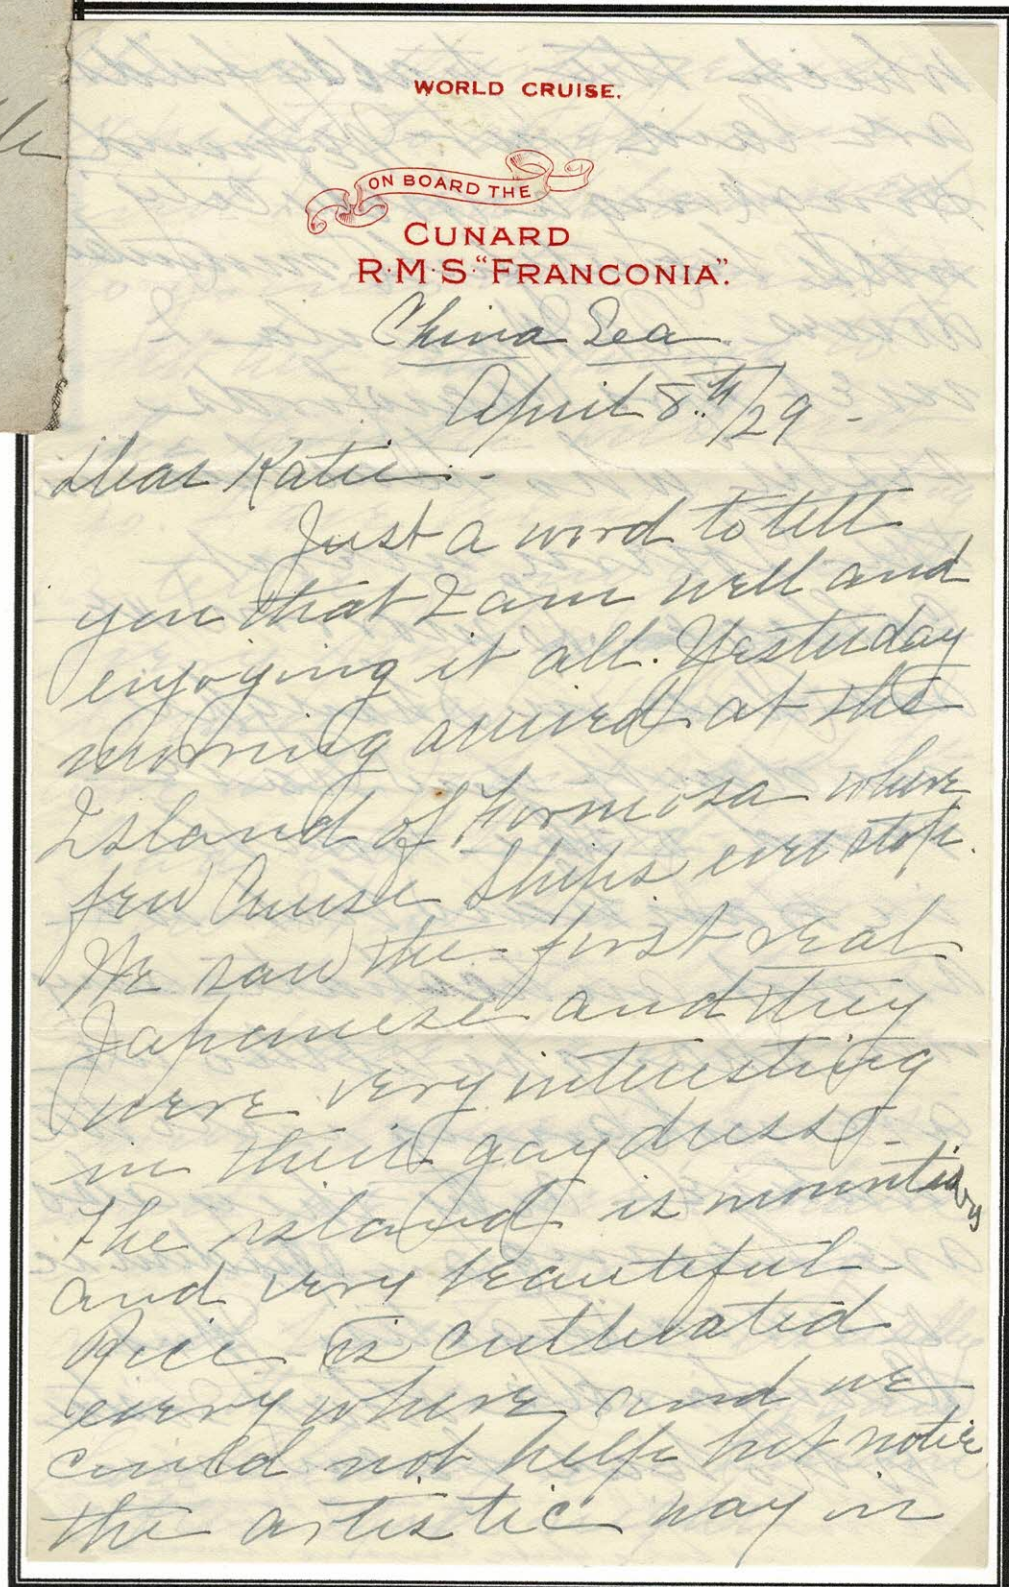 WORLD CRUISE.
ON BOARD THE
CUNARD
R·M·S·"FRANCONIA".
China Sea
April 8th/29 -
Dear Katie:-
Just a word to tell
you that I am well and
enjoying it all. Yesterday
morning arrived at the
Island of Formosa where
few Cruise Ships ever stop.
We saw the first real
Japanese and they
were very interesting
in their gay dress -
The island is mountainous
and very beautiful -
Rice is cultivated
every where and we
could not help but notice
the artistic way in